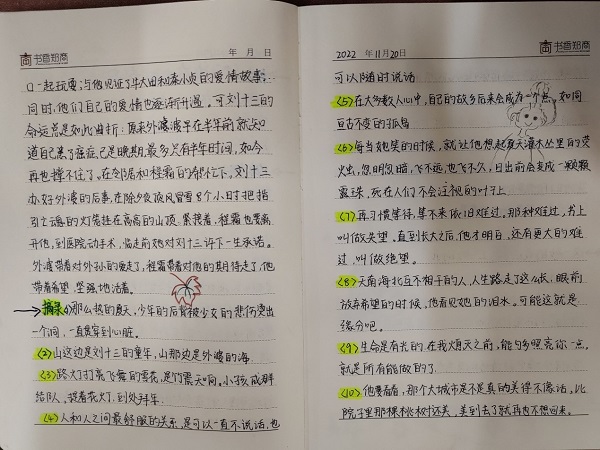 书香知商
年 月 日
口一起玩耍;与他见证了牛大田和秦小贞的爱情故事;
同时,他们自己的爱情也逐渐升温。可刘十三的
命运总是如此曲折:原来外婆早在半年前就知
道自己患了癌症,已是晚期,最多只有半年时间,如今
再也撑不住了,在邻居和程霜的帮忙下,刘十三
办好外婆的后事,在除夕夜顶风冒雪8个小时把指
引亡魂的灯笼挂在高高的山顶。紧接着,程霜也要离
开他,到医院动手术,临走前她对刘十三许下一生承诺。
外婆带着对外孙的爱走了,程霜带着对他的期待走了,他
带着希望,坚强地活着。
摘录:(1)那么热的夏天,少年的后背被少女的悲伤烫出
一个洞,一直贯穿到心脏。
(2)山这边是刘十三的童年,山那边是外婆的海.
(3)路灯打亮飞舞的雪花,是竹震天响。小孩成群
结队,提着花灯,到处拜年.
(4)人和人之间最舒服的关系,是可以一直不说话,也
2022 年 11 月 20 日
书香知商
可以随时说话
(5)在大多数人心中,自己的故乡后来会成为一个点,如同
亘古不变的孤岛
(6)每当她笑的时候,就让他想起夏天灌木丛里的萤
火虫,忽明忽暗,飞不远,也飞不久,日出前会变成一颗颗
露珠,死在人们不会注视的叶子上
(7)再习惯等待,等不来依旧难过。那种难过,书上
叫做失望。直到长大之后,他才明白,还有更大的难
过,叫做绝望。
(8)天南海北互不相干的人,人生路走了这么长,眼前
放弃希望的时候,他看见她的泪水。可能这就是
缘分吧。
(9)生命是有光的.在我熄灭之前,能多照亮你一点,
就是所有能做的了.
(10)他要看看,那个大城市是不是真的美得不像话。比
院子里那棵桃树还美,美到去了就再也不想回来。